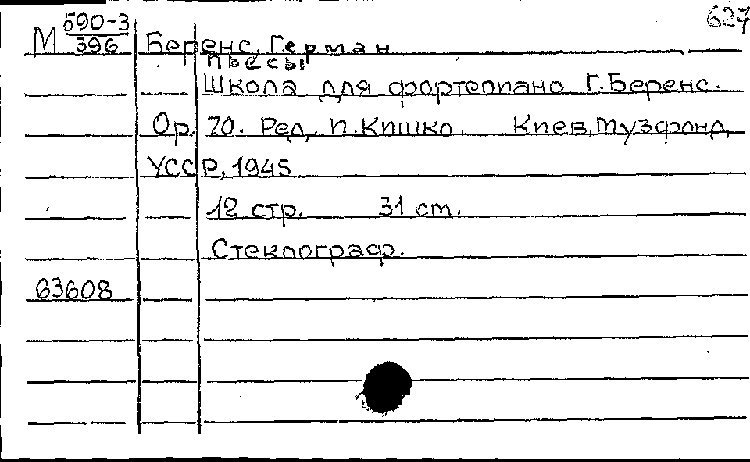 627
М 590-3/396 Беренс, Герман
Пьесы
Школа для фортепиано Г. Беренс.
Op. 70. Ред. П. Кишко. Киев, Музфонд
УССР, 1945
12 стр. 31 cm.
Стеклограф.
63608